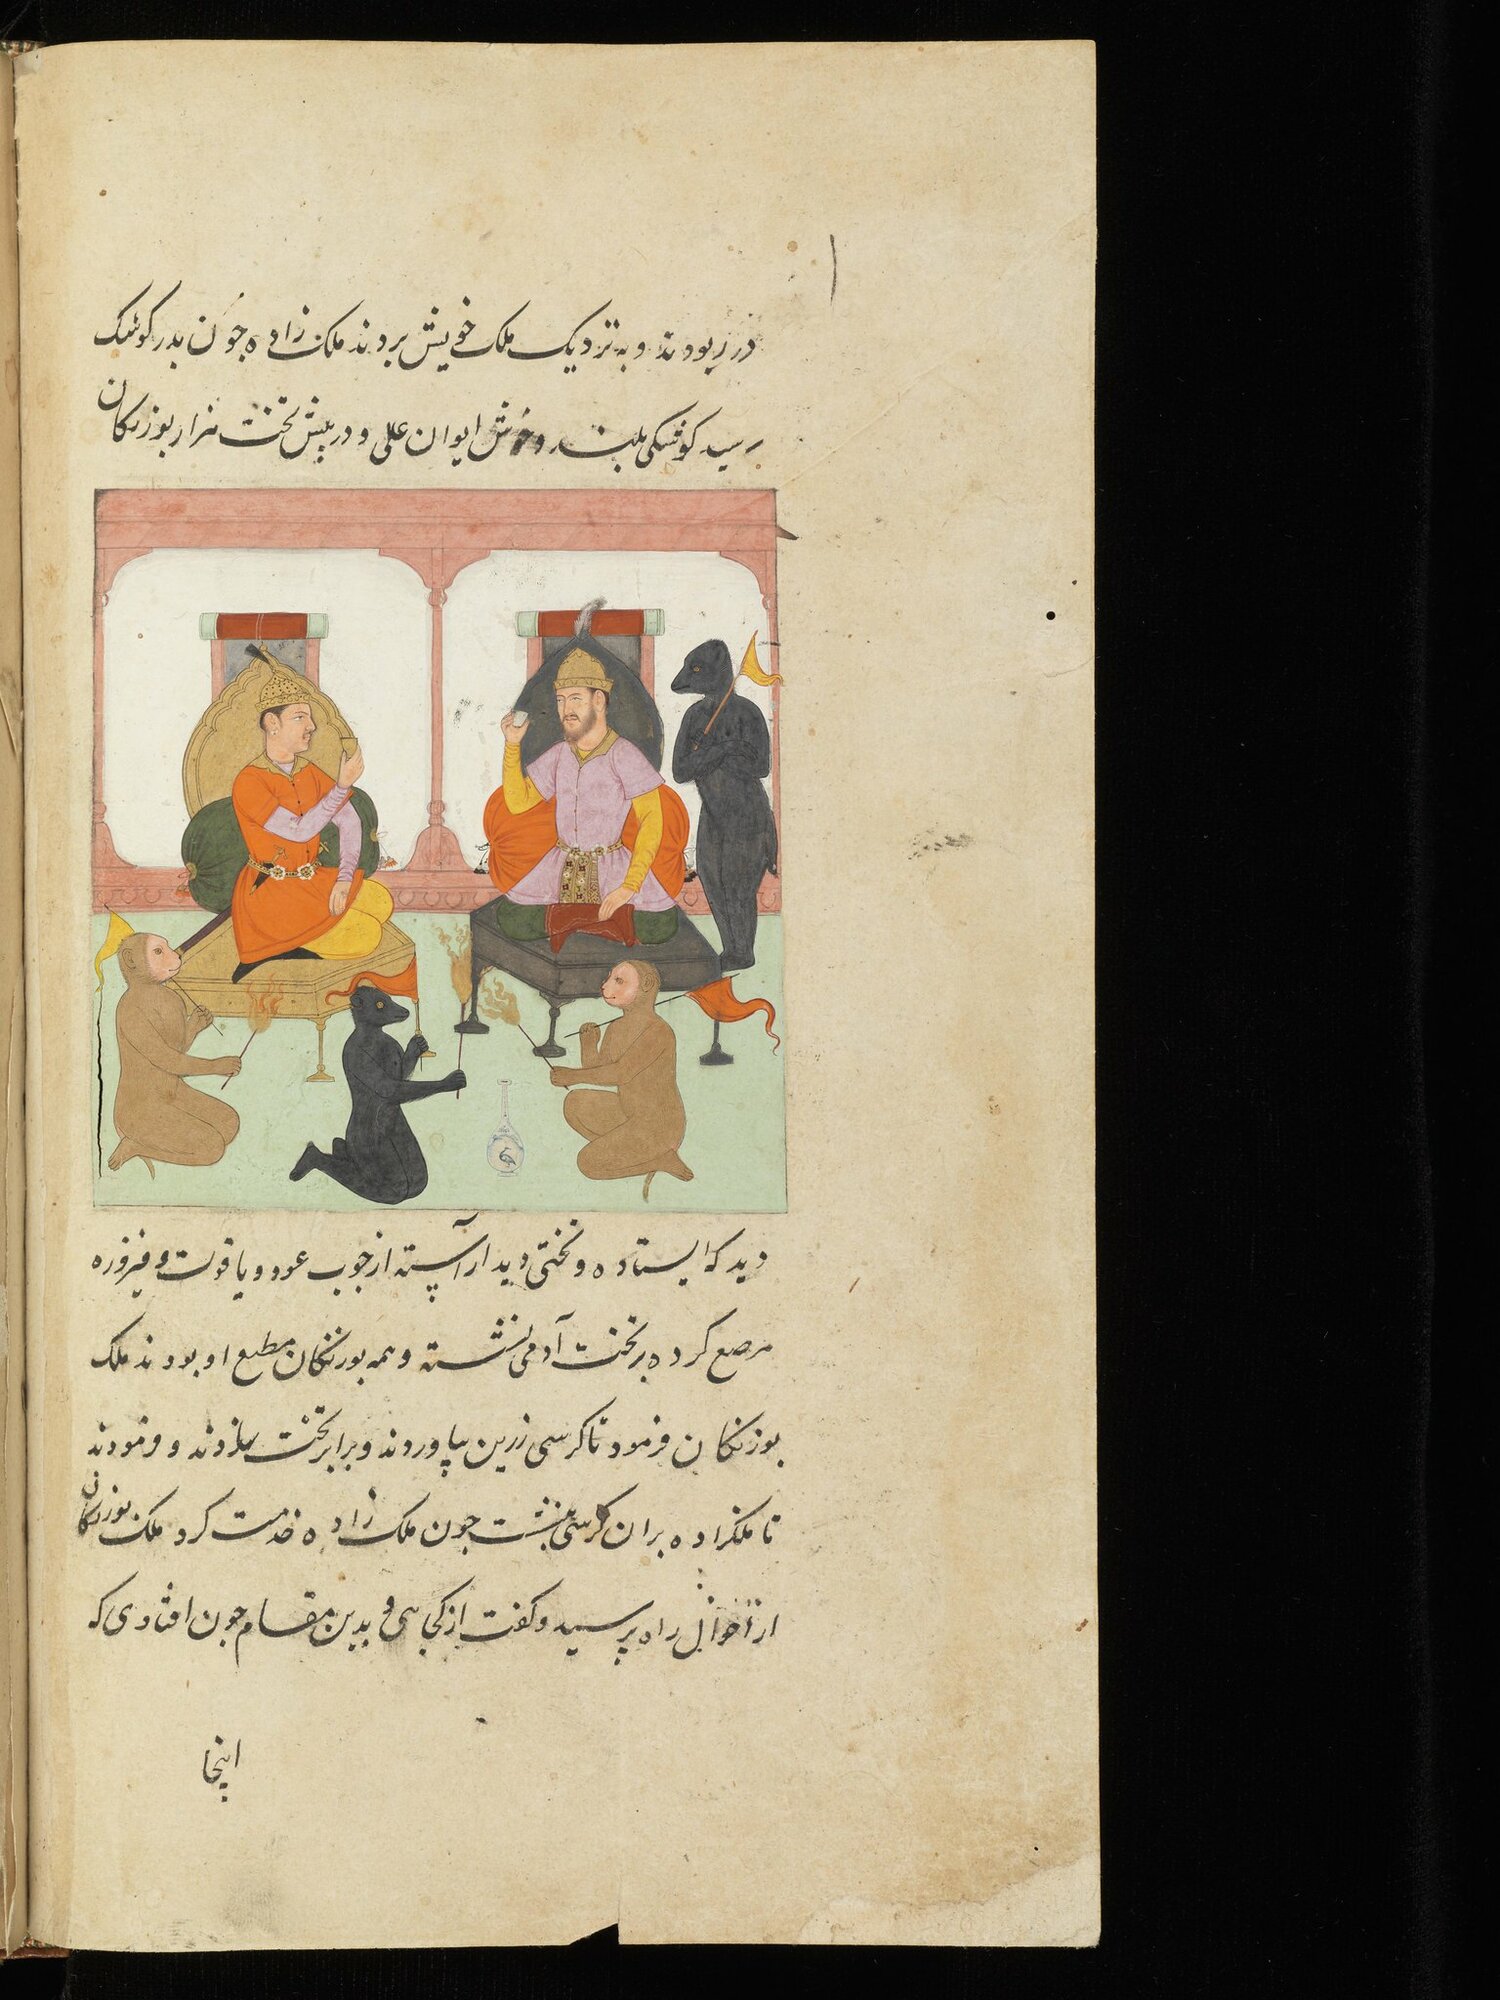 در ربودند و به نزدیک ملک خویش بردند ملک زاده چون بدر کوشک
رسید کوشکی بلند و خوش ایوان علی و در پیش تخت هزار بوزنکان
دید که ایستاده و تختی دید آراسته از چوب عود و یاقوت و فیروزه
مرصع کرده بر تخت آدمی نشسته و همه بوزنکان مطیع او بودند ملک
بوزنکان فرمود تا کرسی زرین بیاوردند و برابر تخت بلزدند و فرمودند
تا ملکزاده بران کرسی بنشست چون ملک زاده خدمت کرد ملک بوزنکان
از احوال راه پرسید و گفت از کجا می و بدین مقام چون افتادی که
اینجا